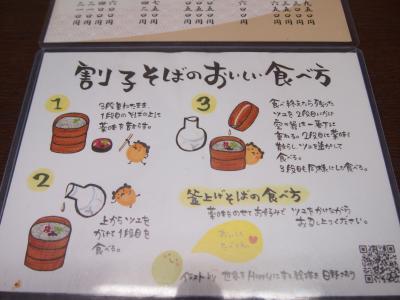 割子そばのおいしい食べ方
1
3段重ねたまま、
1段目のそばの上に
薬味を乗せます。
2
上からツユを
かけて1段目を
食べる。
3
食べ終えたら残った
ツユを2段目にかけ
空の器は一番下に
重ねる。2段目に薬味
散らしツユを逃がして
食べる。
3段目も同様にして食べる。
釜上げそばの食べ方
薬味をのせてお好みで ツユをかけながら
お召し上がりください。
おいしく
たべてね